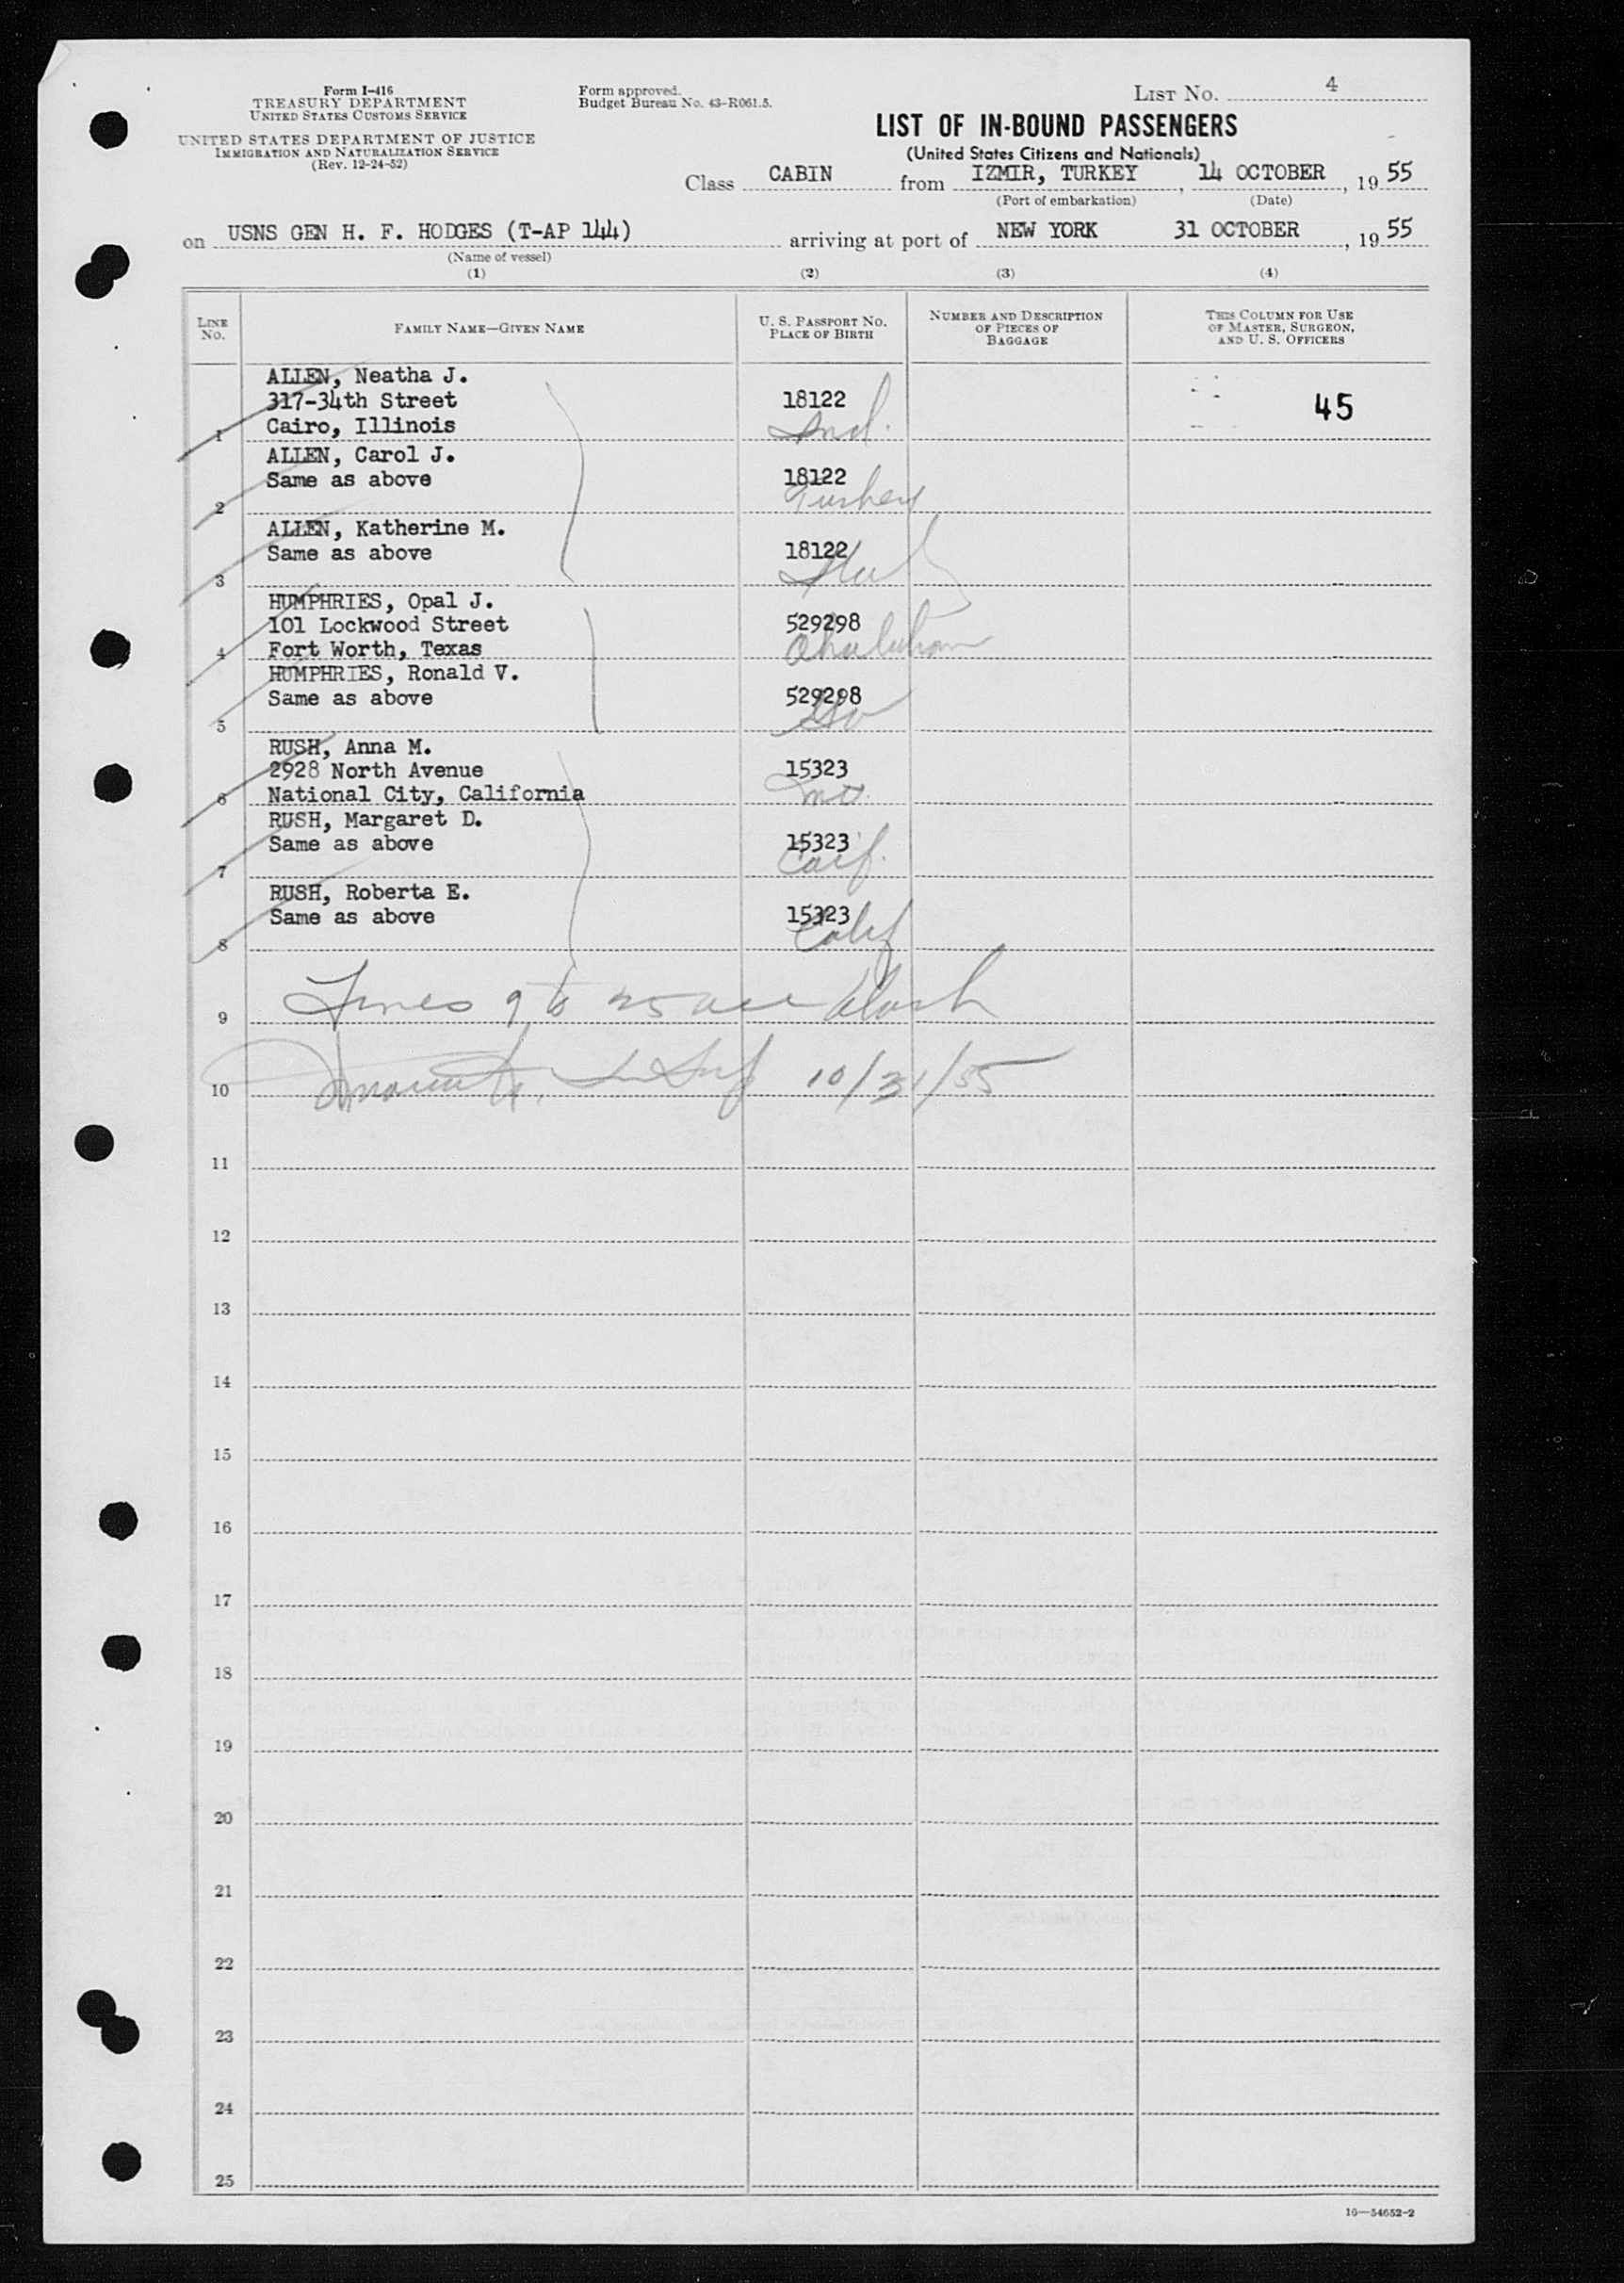 Form I-416
TREASURY DEPARTMENT
UNITED STATES CUSTOMS SERVICE
UNITED STATES DEPARTMENT OF JUSTICE
IMMIGRATION AND NATURALIZATION SERVICE
(Rev. 12-24-52)
Form approved.
Budget Bureau No. 43-R061.5.
LIST No. 4
LIST OF IN-BOUND PASSENGERS
(United States Citizens and Nationals)
Class CABIN from IZMIR, TURKEY, 14 OCTOBER, 1955
(Port of embarkation) (Date)
on USNS GEN H. F. HODGES (T-AP 144) arriving at port of NEW YORK 31 OCTOBER, 1955
(Name of vessel)
(1) (2) (3) (4)
LINE No. FAMILY NAME—GIVEN NAME U. S. PASSPORT No. PLACE OF BIRTH NUMBER AND DESCRIPTION OF PIECES OF BAGGAGE THIS COLUMN FOR USE OF MASTER, SURGEON, AND U. S. OFFICERS
ALLEN, Neatha J.
317-34th Street 18122 45
1 Cairo, Illinois Ind.
ALLEN, Carol J.
Same as above 18122
2 Turkey
ALLEN, Katherine M.
Same as above 18122
3
HUMPHRIES, Opal J.
101 Lockwood Street 529298
4 Fort Worth, Texas
HUMPHRIES, Ronald V.
Same as above 529298
5
RUSH, Anna M.
2928 North Avenue 15323
6 National City, California Mo.
RUSH, Margaret D.
Same as above 15323
7 Calif.
RUSH, Roberta E.
Same as above 15323
8 Calif
9 Lines 9 to 25 are blank
10 10/31/55
11
12
13
14
15
16
17
18
19
20
21
22
23
24
25
16—54652-2